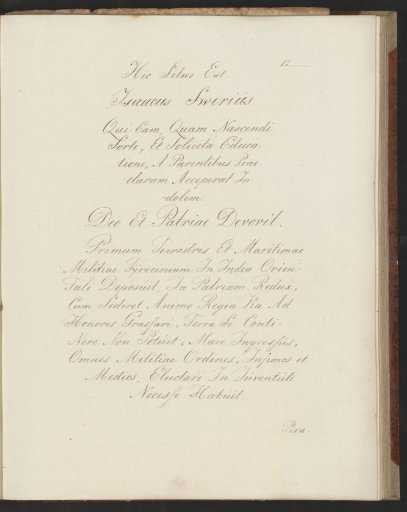 12
Hic Situs Est
Isaacus Sweriüs
Qui Eam Quam Nascendi
Sorte, Et Solicita Educa
tione, A Parentibus Prae
claram Acceperat In
dolem.
Deo Et Patriae Devovit.
Primum Terrestris Et Maritimae
Militiae Tyrocinium In India Orien
tale Deposuit, In Patriam Redux,
Cum Sederet Animo Regia Via Ad
Honores Grassari, Terra Se Conti
Nere Non Potuit, Mare Ingressus,
Omnes Militiae Ordines, Infimos et
Medios, Eluctari In Juventute
Necesse Habuit